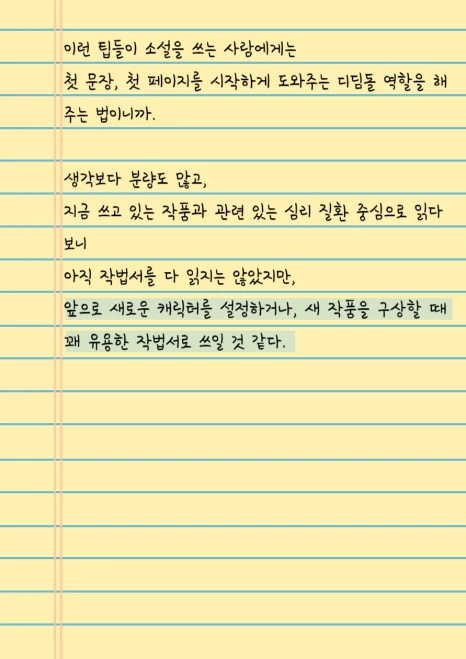 이런 팁들이 소설을 쓰는 사람에게는
첫 문장, 첫 페이지를 시작하게 도와주는 디딤돌 역할을 해
주는 법이니까.
생각보다 분량도 많고,
지금 쓰고 있는 작품과 관련 있는 심리 질환 중심으로 읽다
보니
아직 작법서를 다 읽지는 않았지만,
앞으로 새로운 캐릭터를 설정하거나, 새 작품을 구상할 때
꽤 유용한 작법서로 쓰일 것 같다.